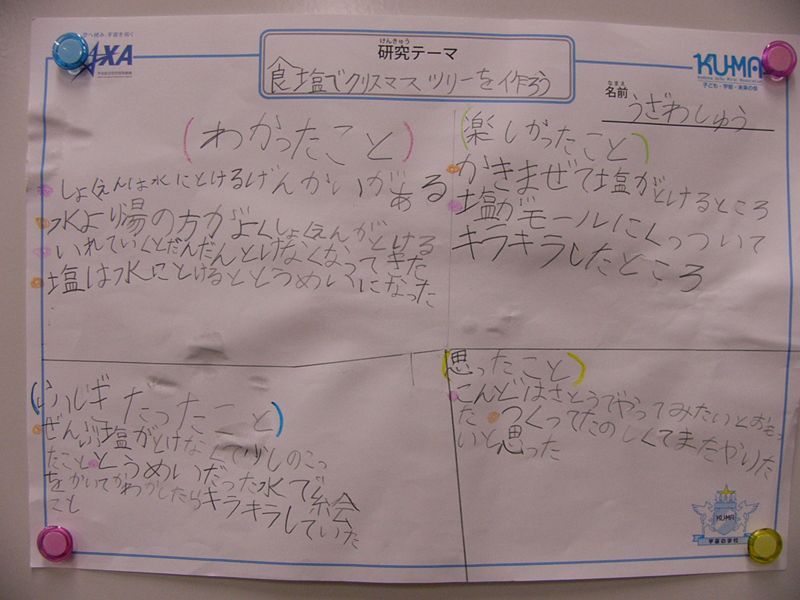 けんきゅう
研究テーマ
食塩でクリスマスツリーを作ろう
KUMA
子ども・宇宙・未来の会
なまえ
名前
うざわしゅう
(わかったこと)
しょくえんは水にとけるげんかいがある
水より湯の方がよくしょくえんがとける
いれていくとだんだんとけなくなってきた
塩は水にとけるととうめいになった
(楽しかったこと)
かきまぜて塩がとけるところ
塩がモールにくっついて
キラキラしたところ
(ふしぎだったこと)
ぜんぶ塩がとけなくて少しのこっ
たこと とうめいだった水で絵
をかいてかわかしたらキラキラしていた
こと
(思ったこと)
こんどはさとうでやってみたいとおもっ
た つくってたのしくてまたやりた
いと思った
KUMA
宇宙の学校